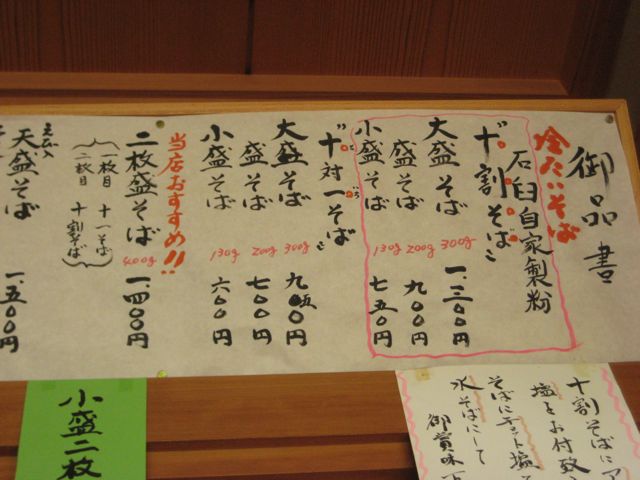 御品書
冷たいそば
石臼自家製粉
"十割そば"
大盛そば 300g 一、三〇〇円
盛そば 200g 九〇〇円
小盛そば 130g 七五〇円
"十対一そば"
大盛そば 300g 九五〇円
盛そば 200g 七〇〇円
小盛そば 130g 六〇〇円
当店おすすめ!!
二枚盛そば 400g 一、四〇〇円
一枚目 十一そば
二枚目 十割そば
天盛そば 一、五〇〇円
十割そばに
塩をお付致
そばにチョット塩
水そばにして
御賞味
小盛二枚